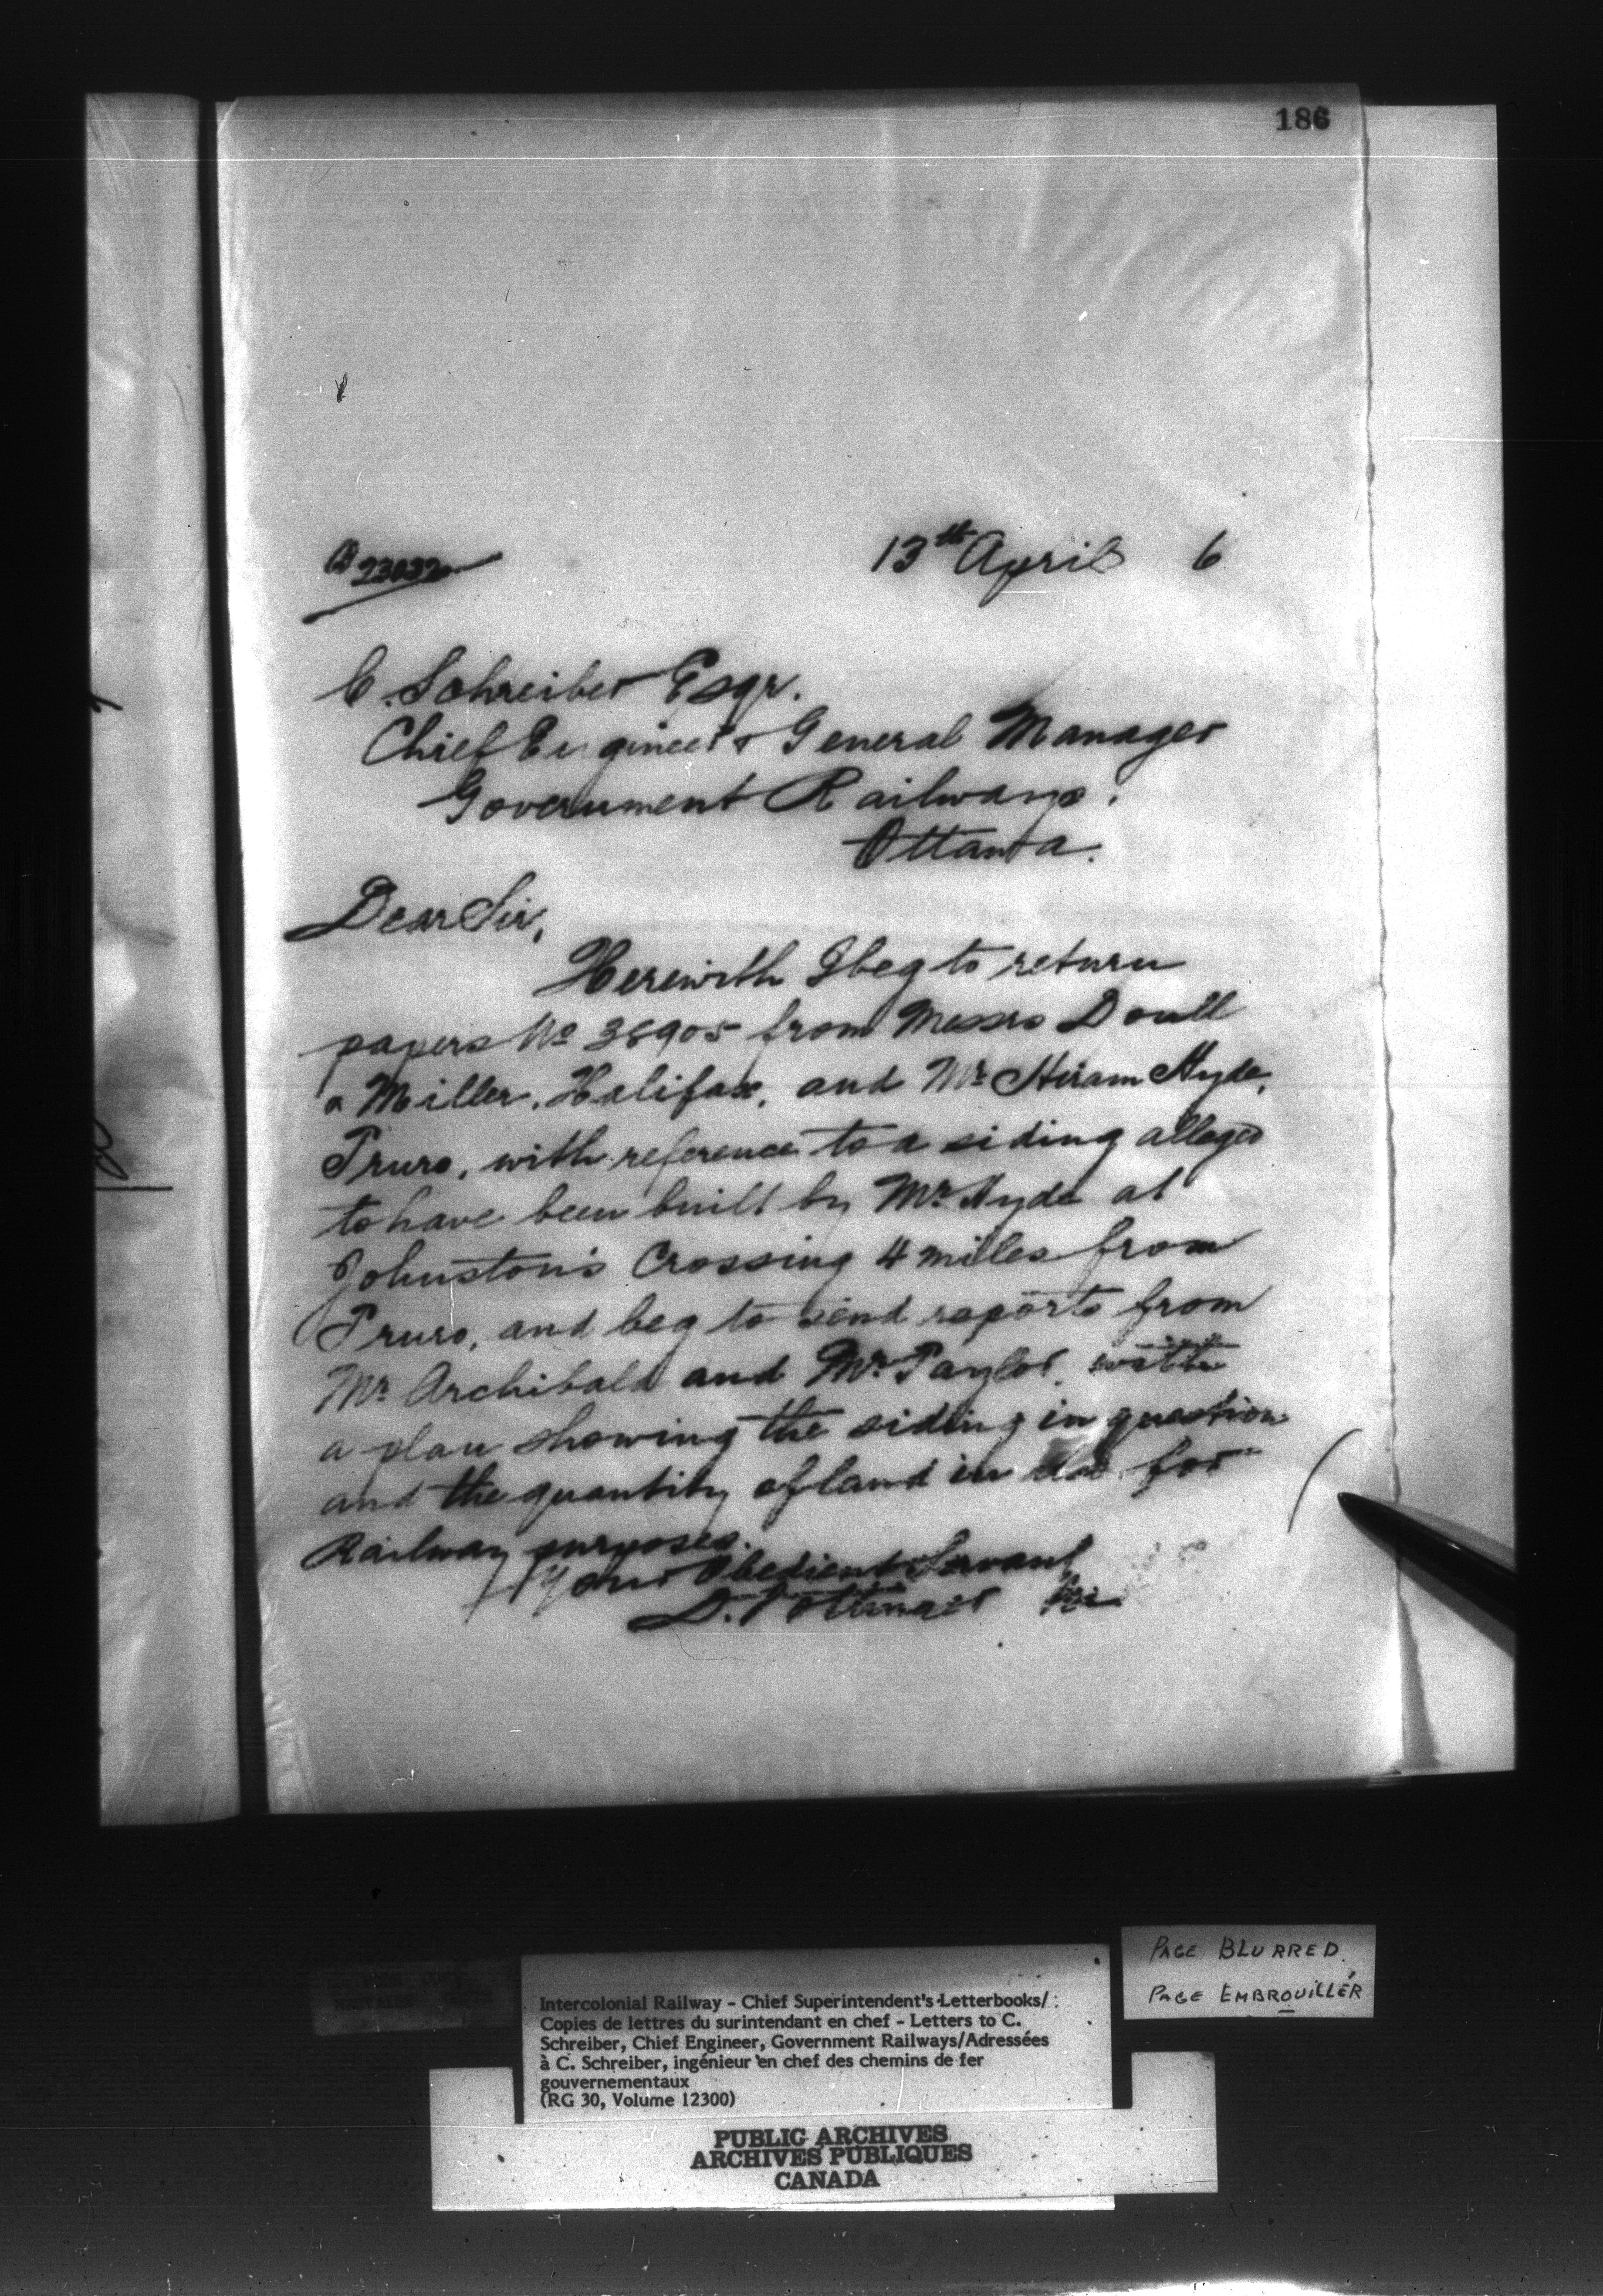 186
13th April 6
23032
C. Schreiber Esqr.
Chief Engineer & General Manager
Government Railways.
Ottawa.
Dear Sir,
Herewith I beg to return
papers No 38905 from Messrs Doull
& Miller, Halifax, and Mr Hiram Hyde,
Truro, with reference to a siding alleged
to have been built by Mr Hyde at
Johnston's Crossing 4 miles from
Truro, and beg to send reports from
Mr Archibald and Mr Taylor, with
a plan showing the siding in question
and the quantity of land in use for
Railway purposes.
Your Obedient Servant
D. Pottinger
PAGE BLURRED
PAGE EMBROUILLÉR
Intercolonial Railway - Chief Superintendent's Letterbooks/
Copies de lettres du surintendant en chef - Letters to C.
Schreiber, Chief Engineer, Government Railways/Adressées
à C. Schreiber, ingénieur en chef des chemins de fer
gouvernementaux
(RG 30, Volume 12300)
PUBLIC ARCHIVES
ARCHIVES PUBLIQUES
CANADA